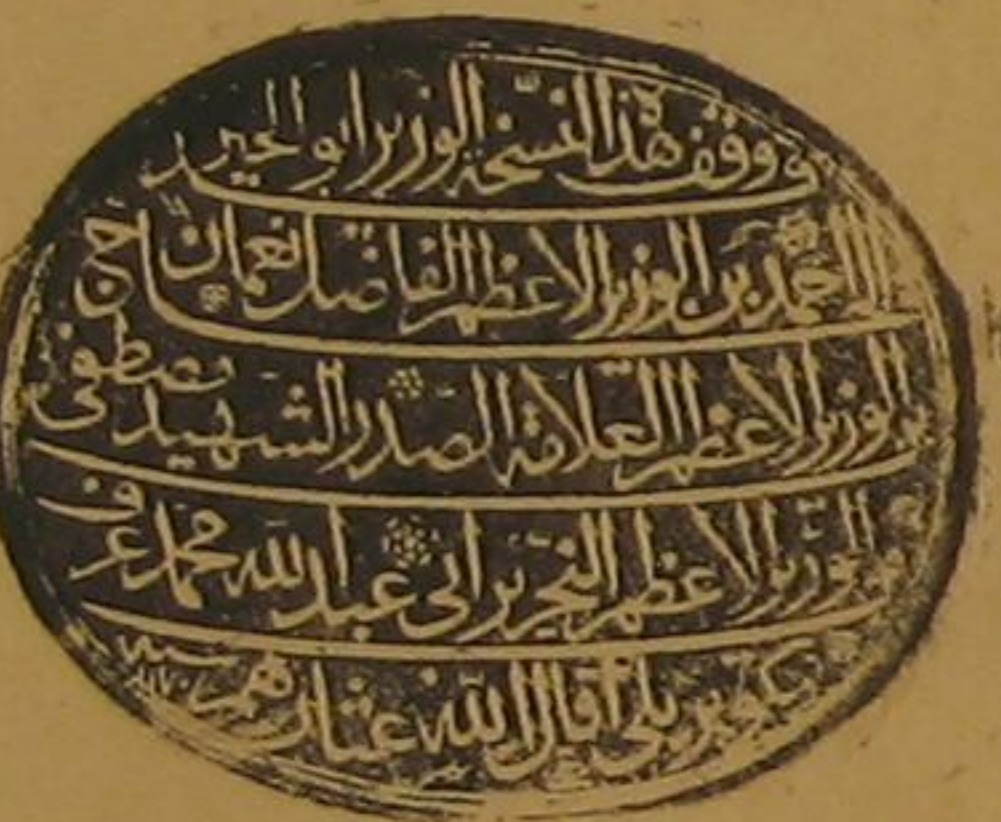 وقف هذا النسخة الوزير ابو الخير
احمد بن الوزير الاعظم الفاضل نعمان
بن الوزير الاعظم العلامة الصدر الشهيد مصطفى
بن الوزير الاعظم النحرير ابي عبد الله محمد عرف
بكوبريلي اقال الله عثارهم سنه